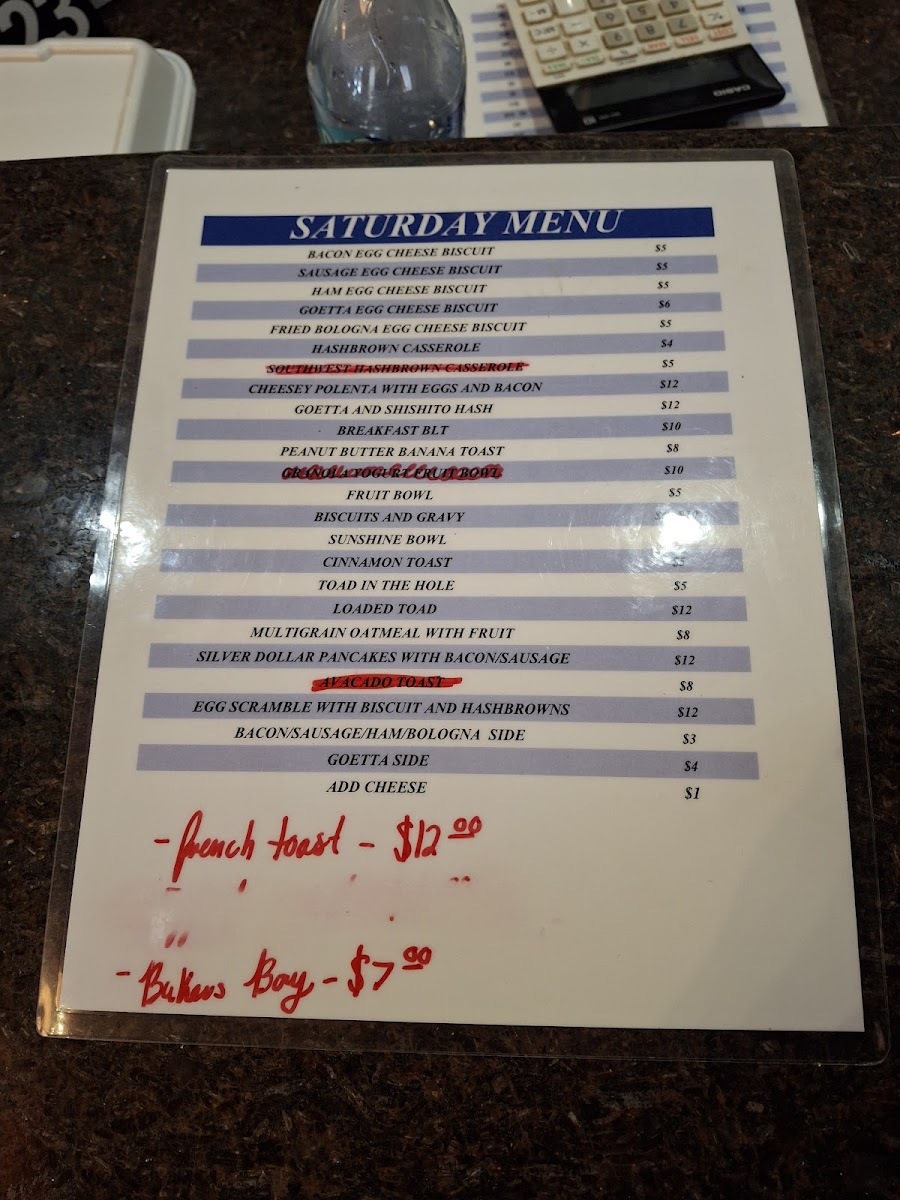 23
CASIO
SATURDAY MENU
BACON EGG CHEESE BISCUIT $5
SAUSAGE EGG CHEESE BISCUIT $5
HAM EGG CHEESE BISCUIT $5
GOETTA EGG CHEESE BISCUIT $6
FRIED BOLOGNA EGG CHEESE BISCUIT $5
HASHBROWN CASSEROLE $4
SOUTHWEST HASHBROWN CASSEROLE $5
CHEESEY POLENTA WITH EGGS AND BACON $12
GOETTA AND SHISHITO HASH $12
BREAKFAST BLT $10
PEANUT BUTTER BANANA TOAST $8
GRANOLA YOGURT FRUIT BOWL $10
FRUIT BOWL $5
BISCUITS AND GRAVY
SUNSHINE BOWL
CINNAMON TOAST $5
TOAD IN THE HOLE $5
LOADED TOAD $12
MULTIGRAIN OATMEAL WITH FRUIT $8
SILVER DOLLAR PANCAKES WITH BACON/SAUSAGE $12
AVACADO TOAST $8
EGG SCRAMBLE WITH BISCUIT AND HASHBROWNS $12
BACON/SAUSAGE/HAM/BOLOGNA SIDE $3
GOETTA SIDE $4
ADD CHEESE $1
- french toast - $12.00
- Bakers Bay - $7.00